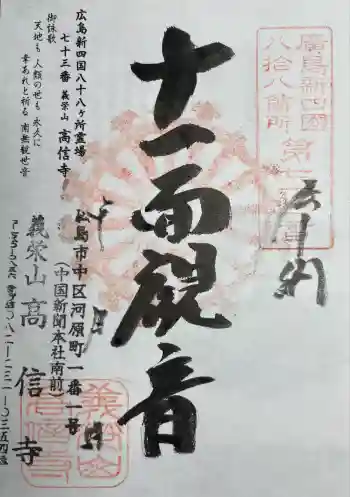 廣島新四國
八拾八箇所
十一面観音
広島新四国八十八ヶ所霊場
七十三番 義栄山 高信寺
御詠歌
天地も 人類の世も 永久に
幸あれと祈る 南無観世音
広島市中区河原町一番一号
(中国新聞本社南前)
義栄山 高信寺
月
日